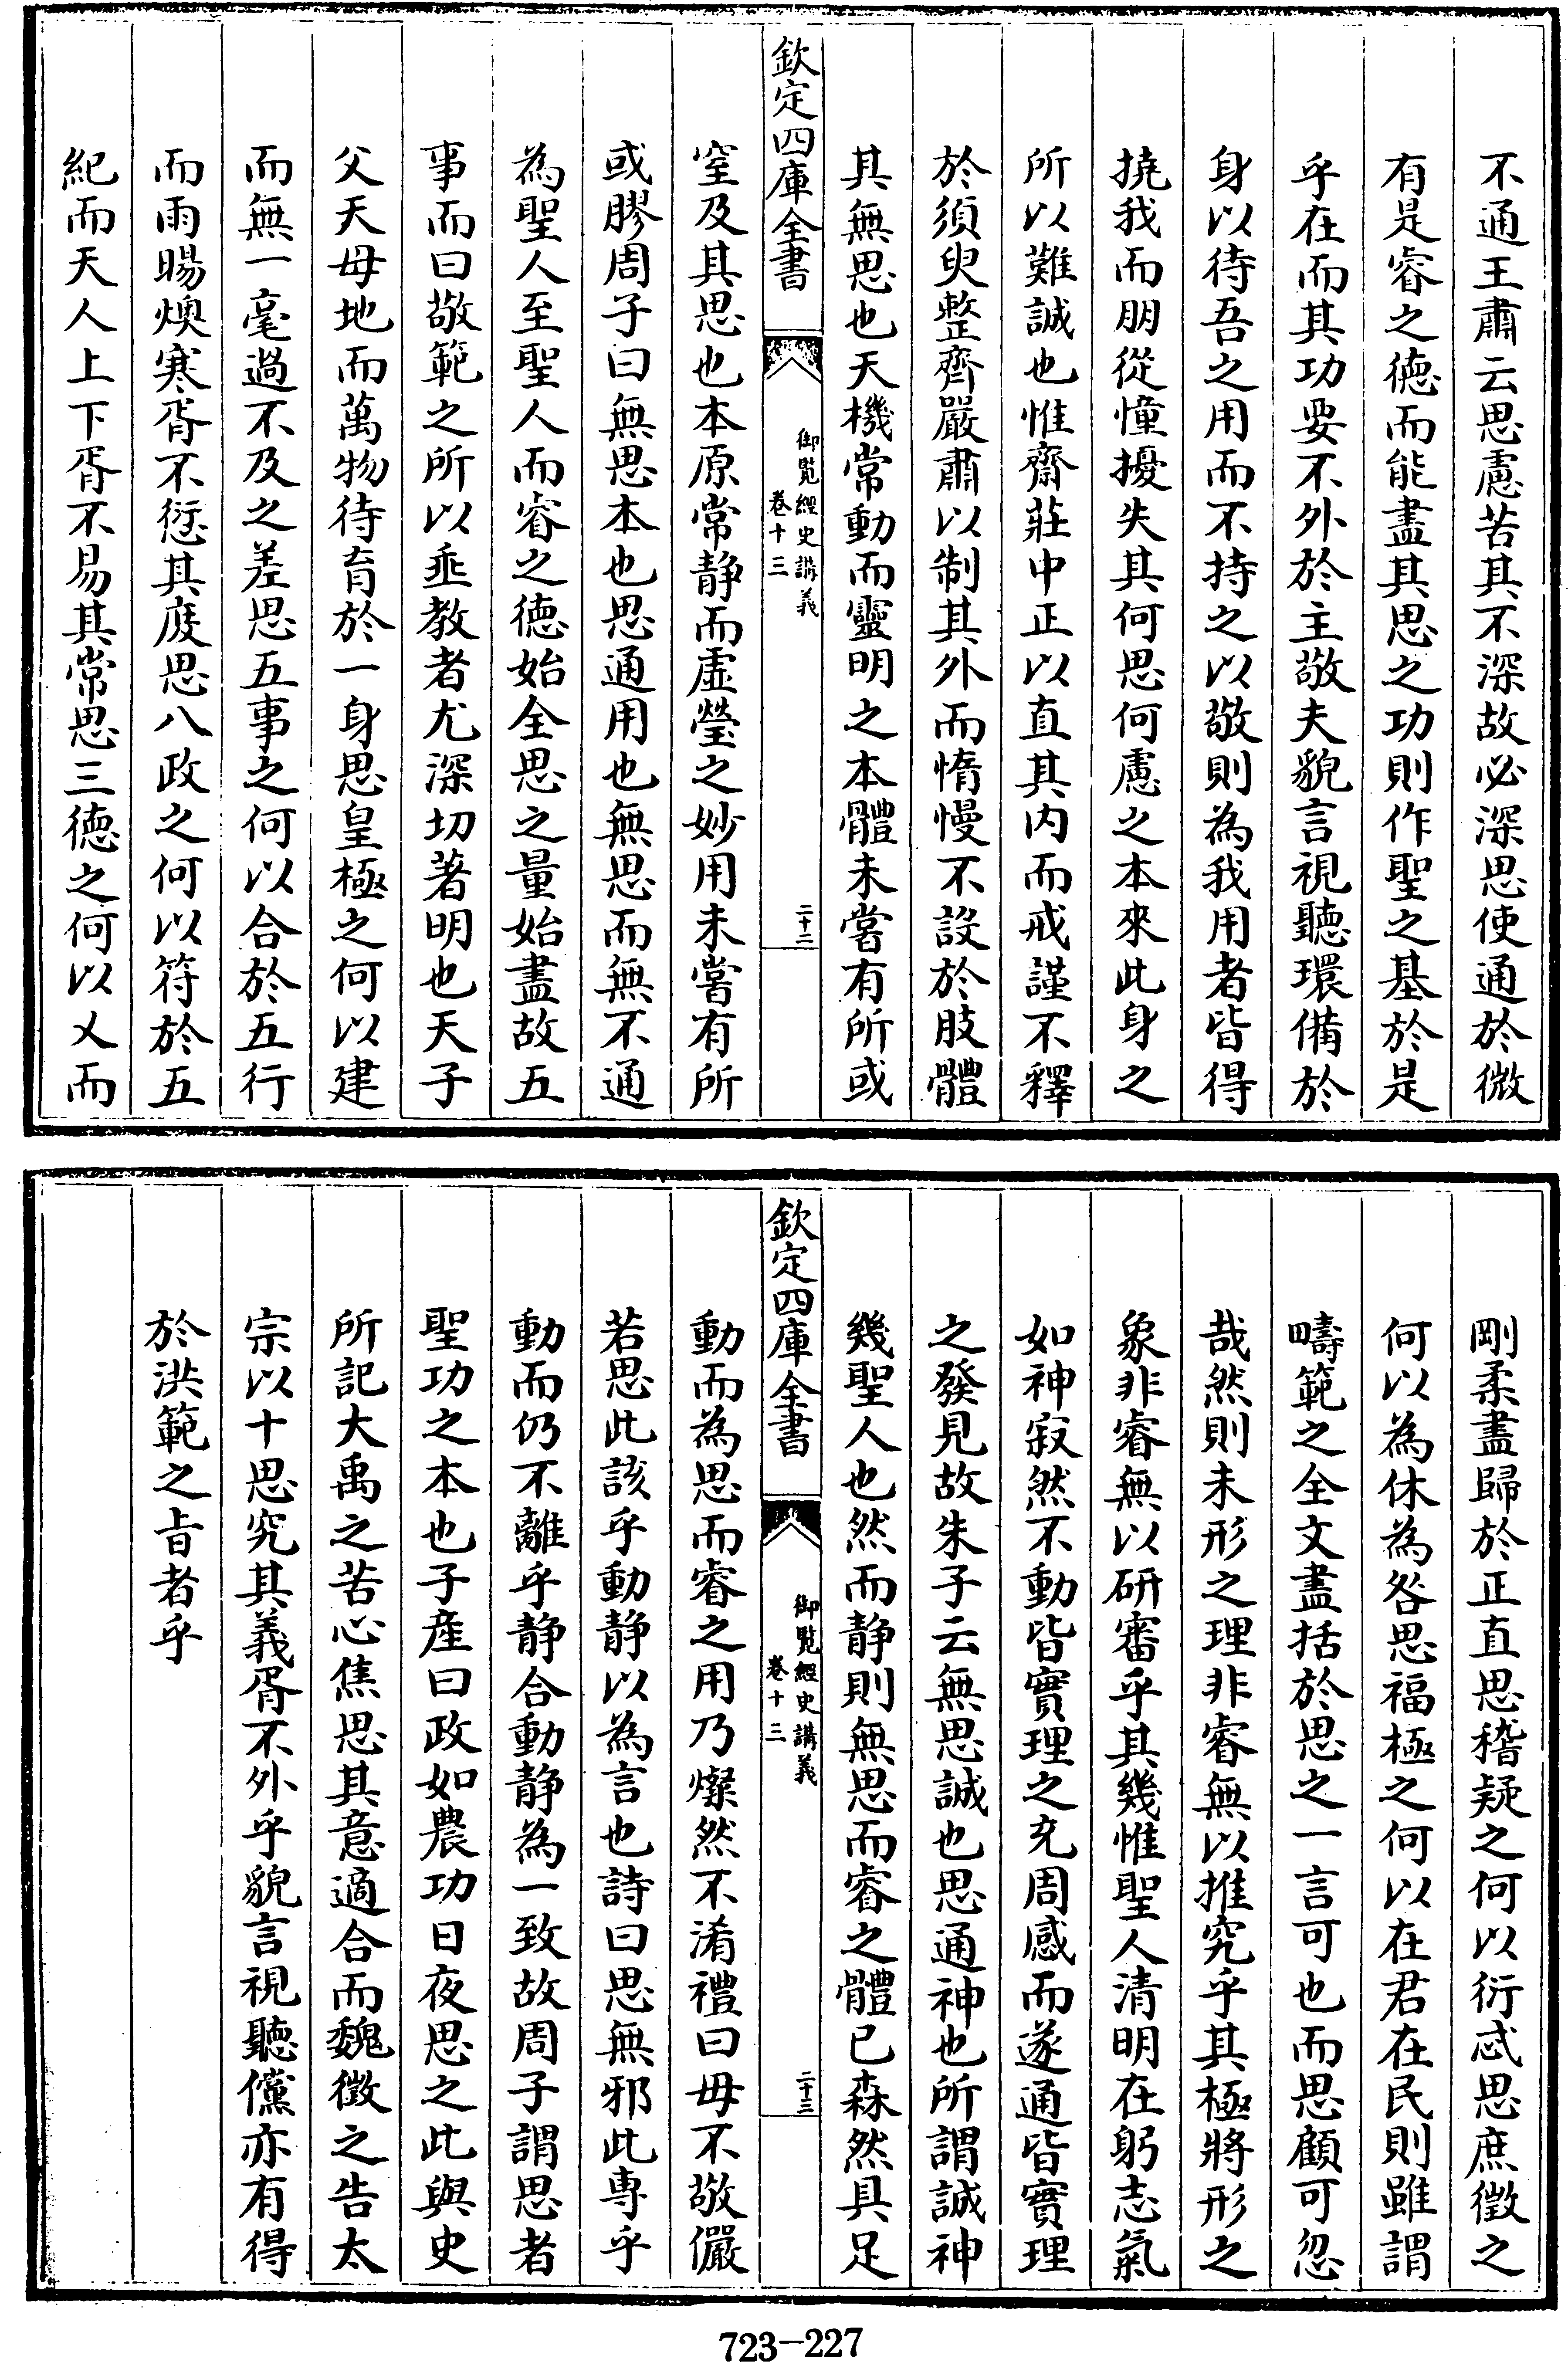 不通王肅云思慮苦其不深故必深思使通於微
有是睿之德而能盡其思之功則作聖之基於是
乎在而其功要不外於主敬夫貌言視聽環備於
身以待吾之用而不持之以敬則為我用者皆得
撓我而朋從憧擾失其何思何慮之本來此身之
所以難誠也惟齋莊中正以直其内而戒謹不釋
於須臾整齊嚴肅以制其外而惰慢不設於肢體
其無思也天機常動而靈明之本體未嘗有所或
欽定四庫全書
御覽經史講義
卷十三
二十二
窒及其思也本原常静而虛瑩之妙用未嘗有所
或膠周子曰無思本也思通用也無思而無不通
為聖人至聖人而睿之德始全思之量始盡故五
事而曰敬範之所以垂教者尤深切著明也天子
父天母地而萬物待育於一身思皇極之何以建
而無一毫過不及之差思五事之何以合於五行
而雨暘燠寒胥不愆其度思八政之何以符於五
紀而天人上下胥不易其常思三德之何以乂而
剛柔盡歸於正直思稽疑之何以衍忒思庶徵之
何以為休為咎思福極之何以在君在民則雖謂
疇範之全文盡括於思之一言可也而思顧可忽
哉然則未形之理非睿無以推究乎其極將形之
象非睿無以研審乎其幾惟聖人清明在躬志氣
如神寂然不動皆實理之充周感而遂通皆實理
之發見故朱子云無思誠也思通神也所謂誠神
幾聖人也然而静則無思而睿之體已森然具足
欽定四庫全書
御覽經史講義
卷十三
二十三
動而為思而睿之用乃燦然不淆禮曰毋不敬儼
若思此該乎動静以為言也詩曰思無邪此專乎
動而仍不離乎静合動静為一致故周子謂思者
聖功之本也子産曰政如農功日夜思之此與史
所記大禹之苦心焦思其意適合而魏徵之告太
宗以十思究其義胥不外乎貌言視聽儻亦有得
於洪範之旨者乎
723-227